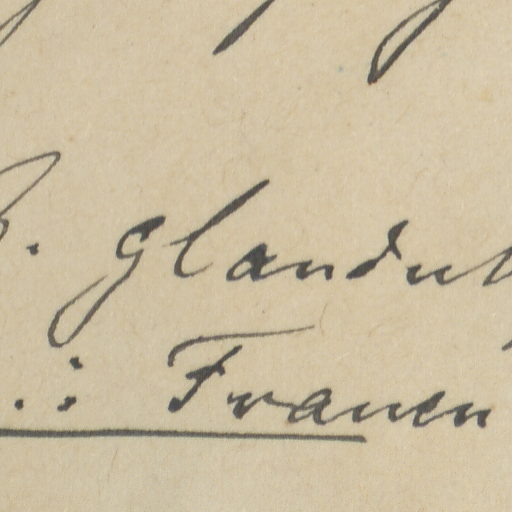 B. glandul
.: Frauen